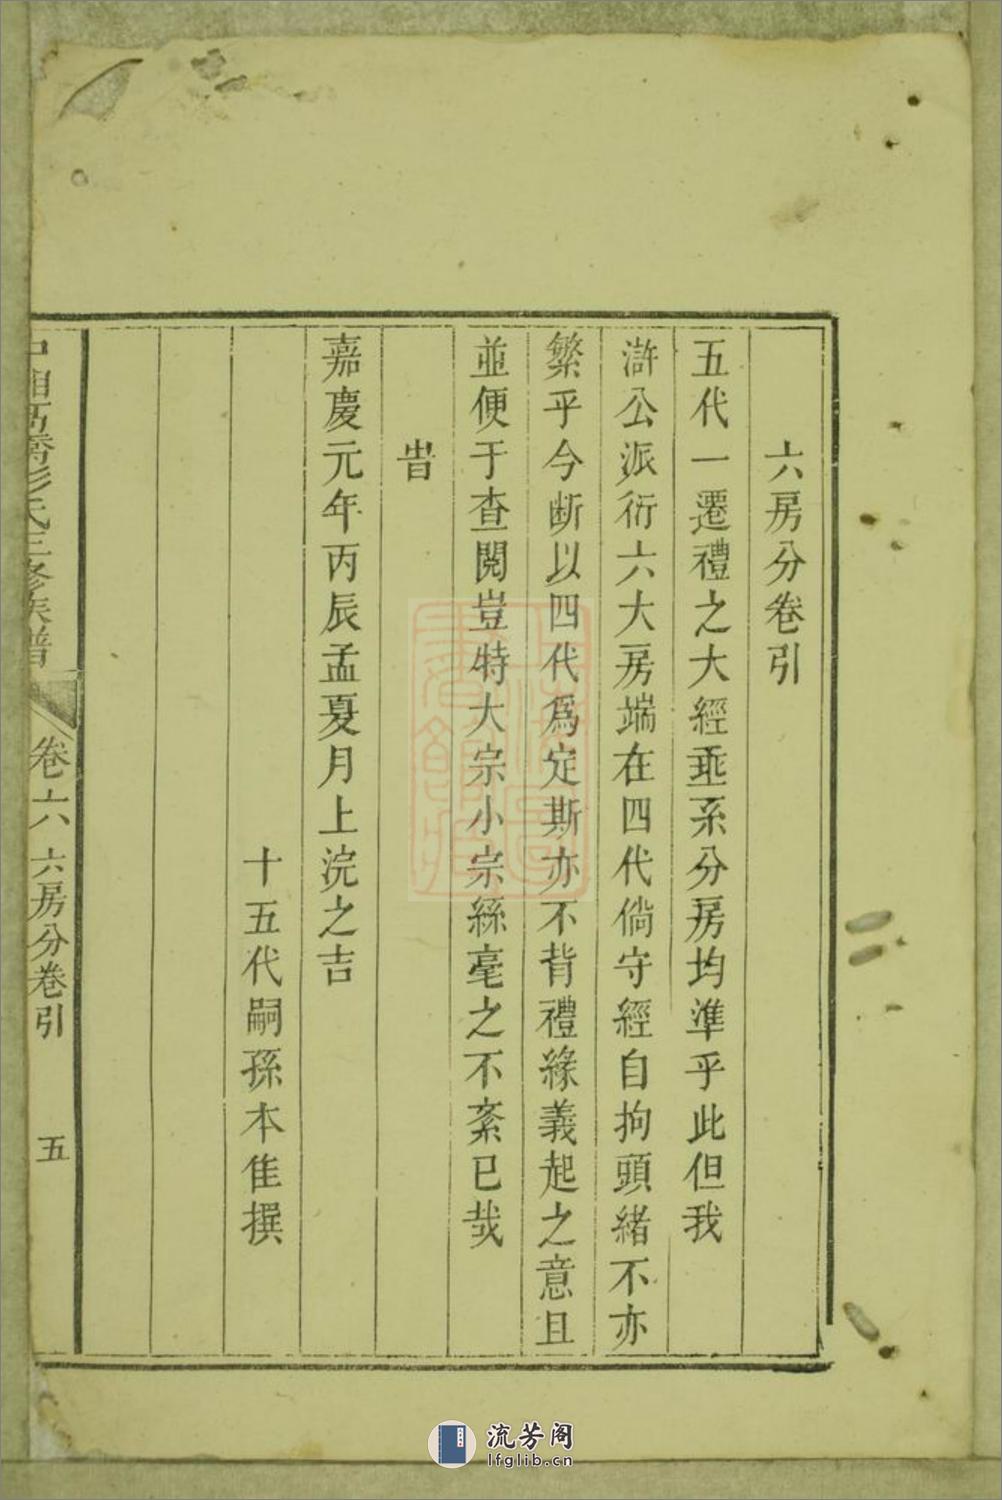 六房分卷引
五代一遷禮之大經垂系分房均準乎此但我
滸公派衍六大房端在四代倘守經自拘頭緒不亦
繁乎今断以四代爲定斯亦不背禮緣義起之意且
並便于查閱豈特大宗小宗絲毫之不紊已哉
旹
嘉慶元年丙辰孟夏月上浣之吉
十五代嗣孫本隹撰
橋彭氏三修族譜
卷六 六房分卷引 五
流芳阁
lfglib.cn